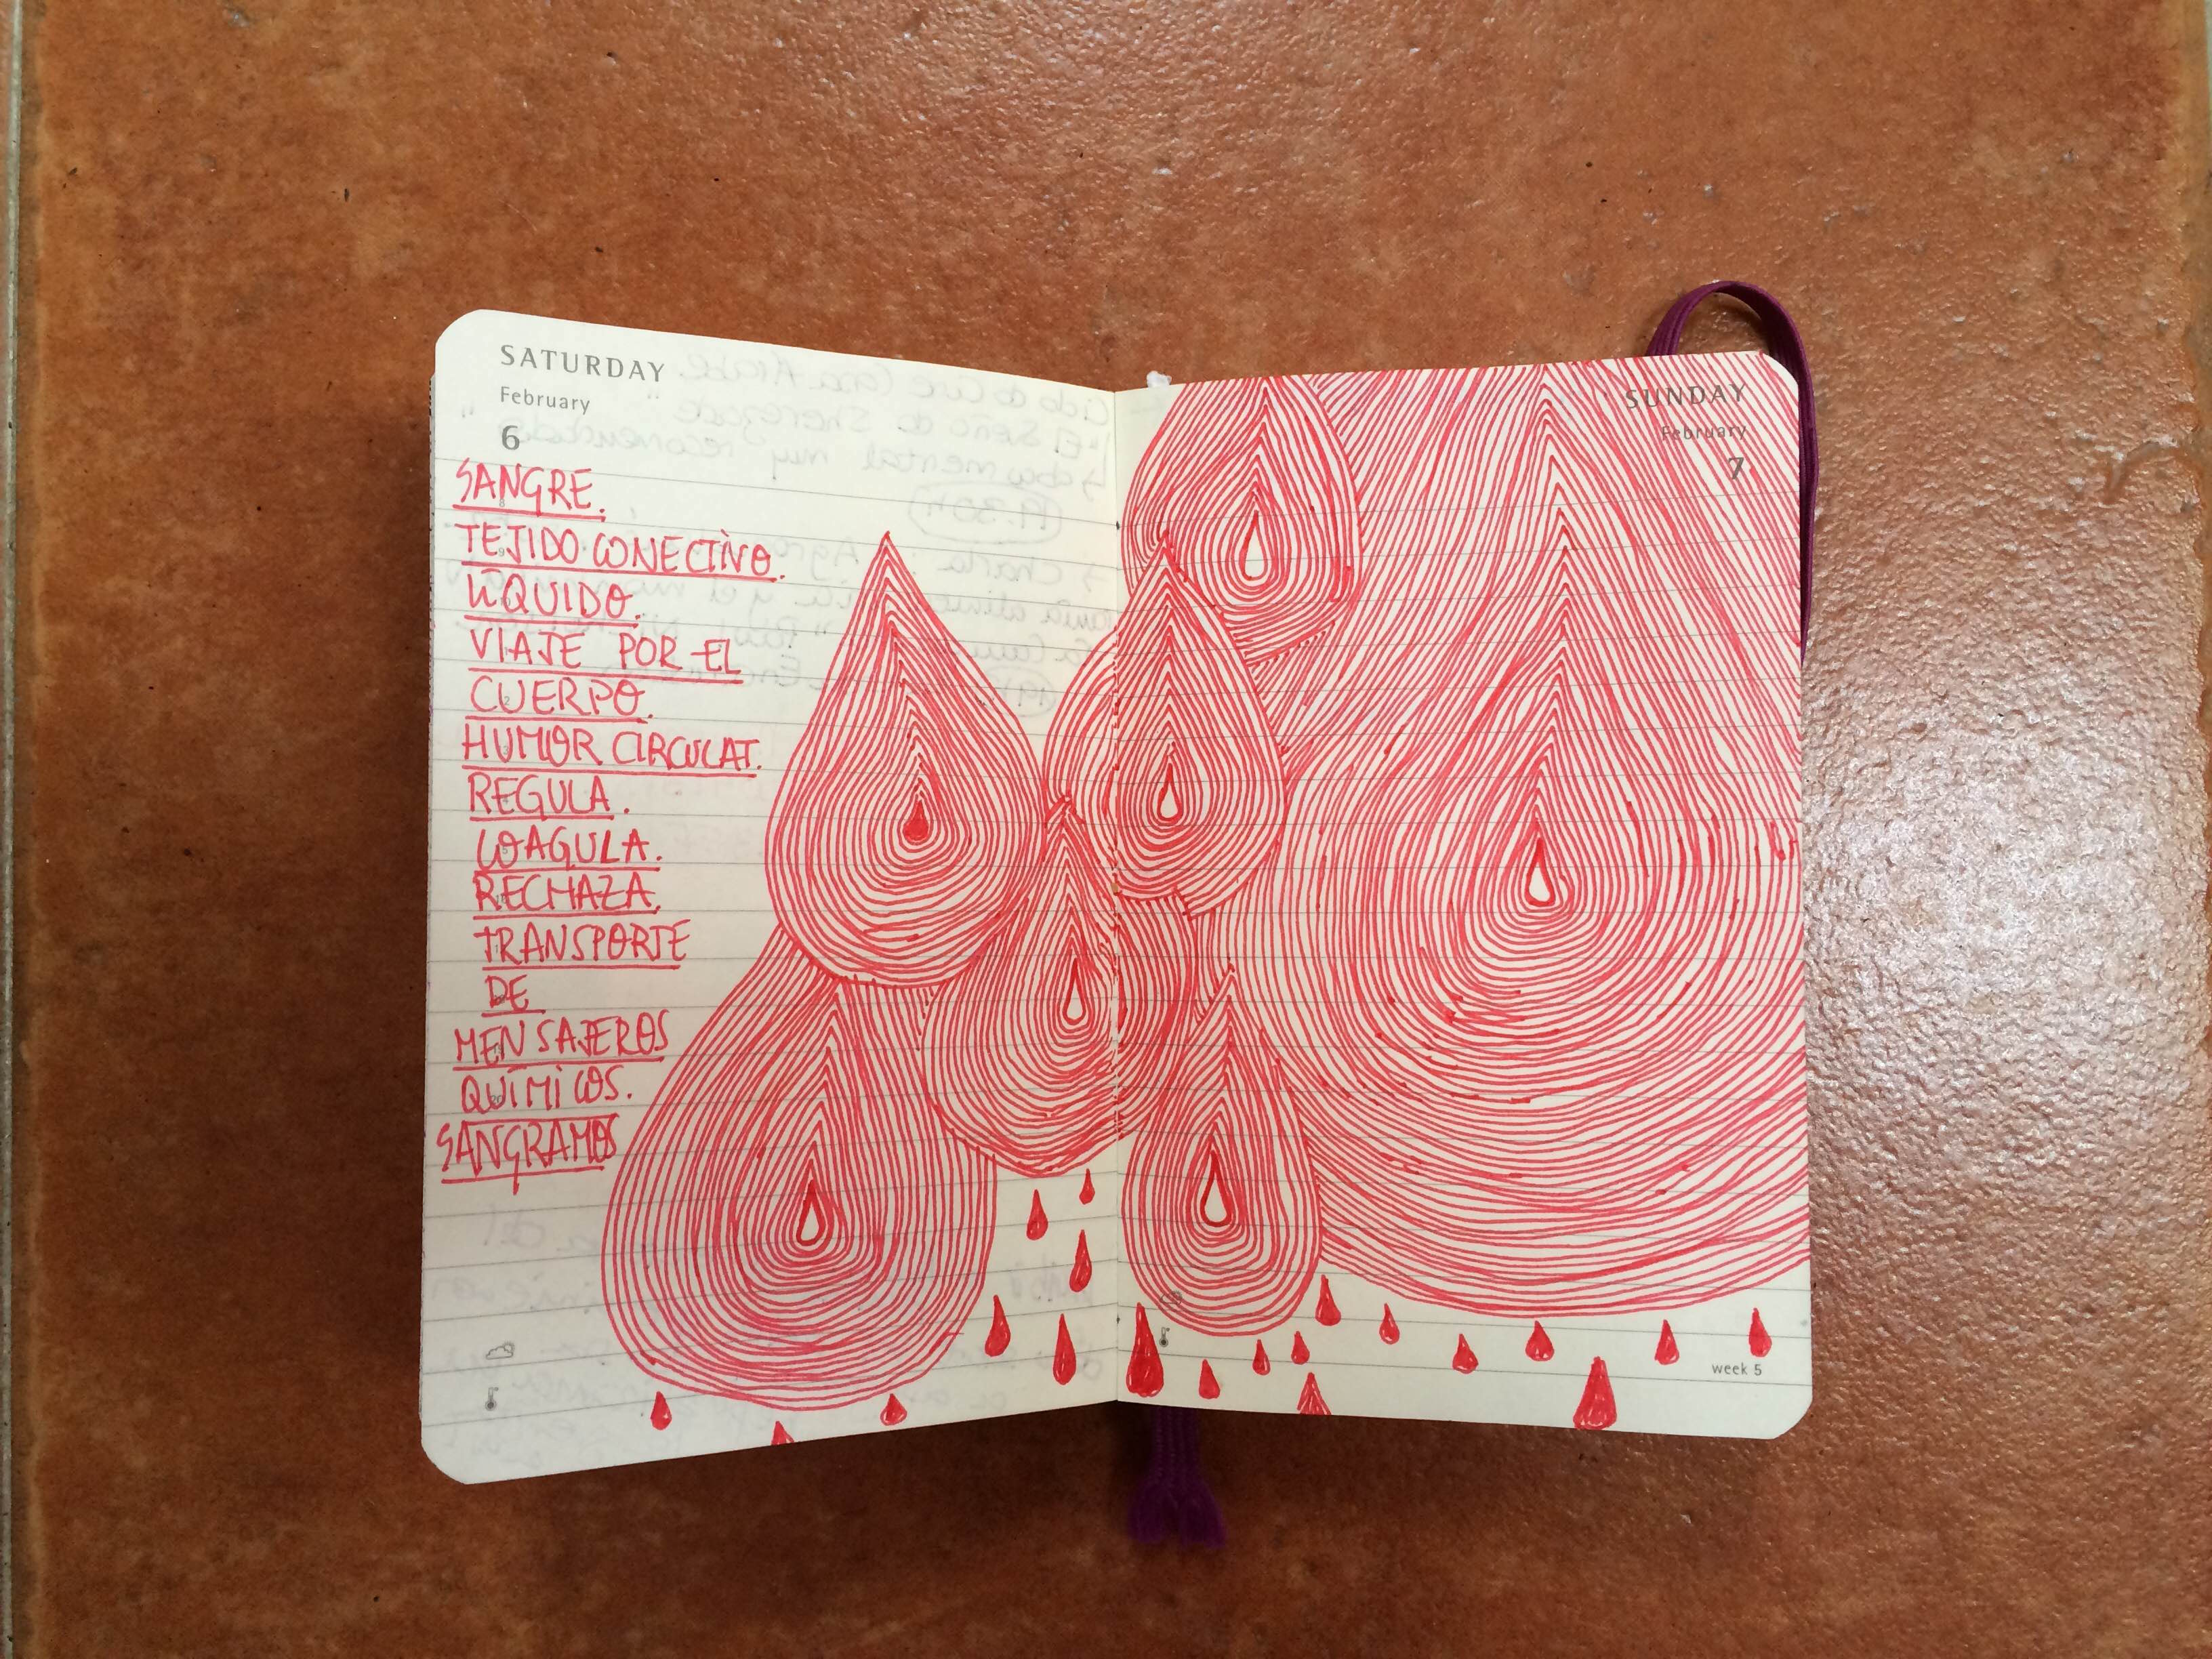 SATURDAY
February
6
SANGRE.
TEJIDO CONECTIVO.
LÍQUIDO.
VIAJE POR EL
CUERPO.
HUMOR CIRCULAT.
REGULA.
COAGULA.
RECHAZA.
TRANSPORTE
DE
MENSAJEROS
QUÍMICOS.
SANGRAMOS
SUNDAY
February
7
week 5